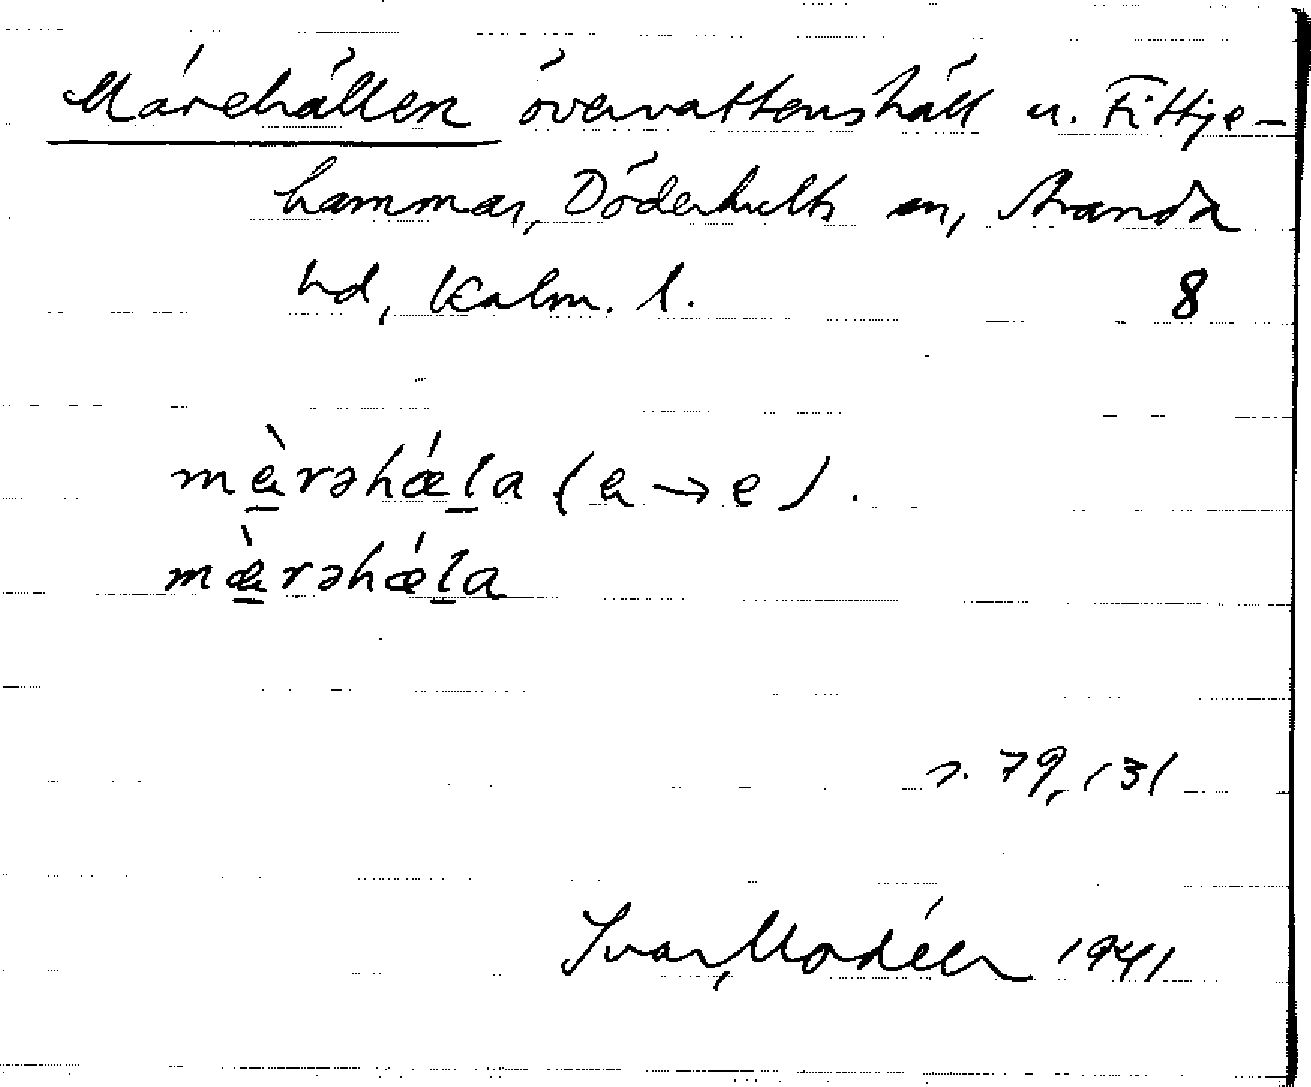 Märehällen övervattenshäll u. Fittje-
hammar, Döderhults sn, Stranda
hd, Kalm. l. 8
mæ̀rəhǽla (æ → e).
mæ̀rəhǽla
s. 79, 131
Ivar Modéer 1941